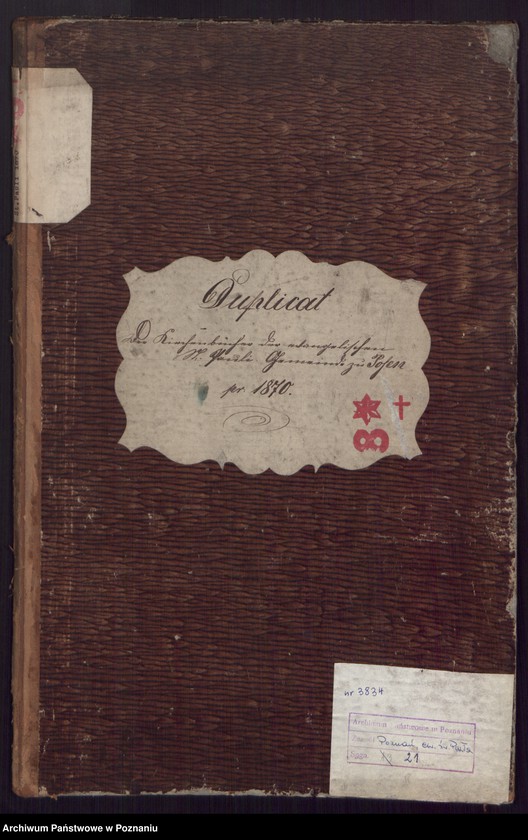 Duplicat
der Kirchenbücher der evangelischen
St. Pauli Gemeinde zu Posen
pr 1870.
8
nr 3834
Archiwum Państwowe w Poznaniu
Poznań, ew. św. Pawła
21
Archiwum Państwowe w Poznaniu